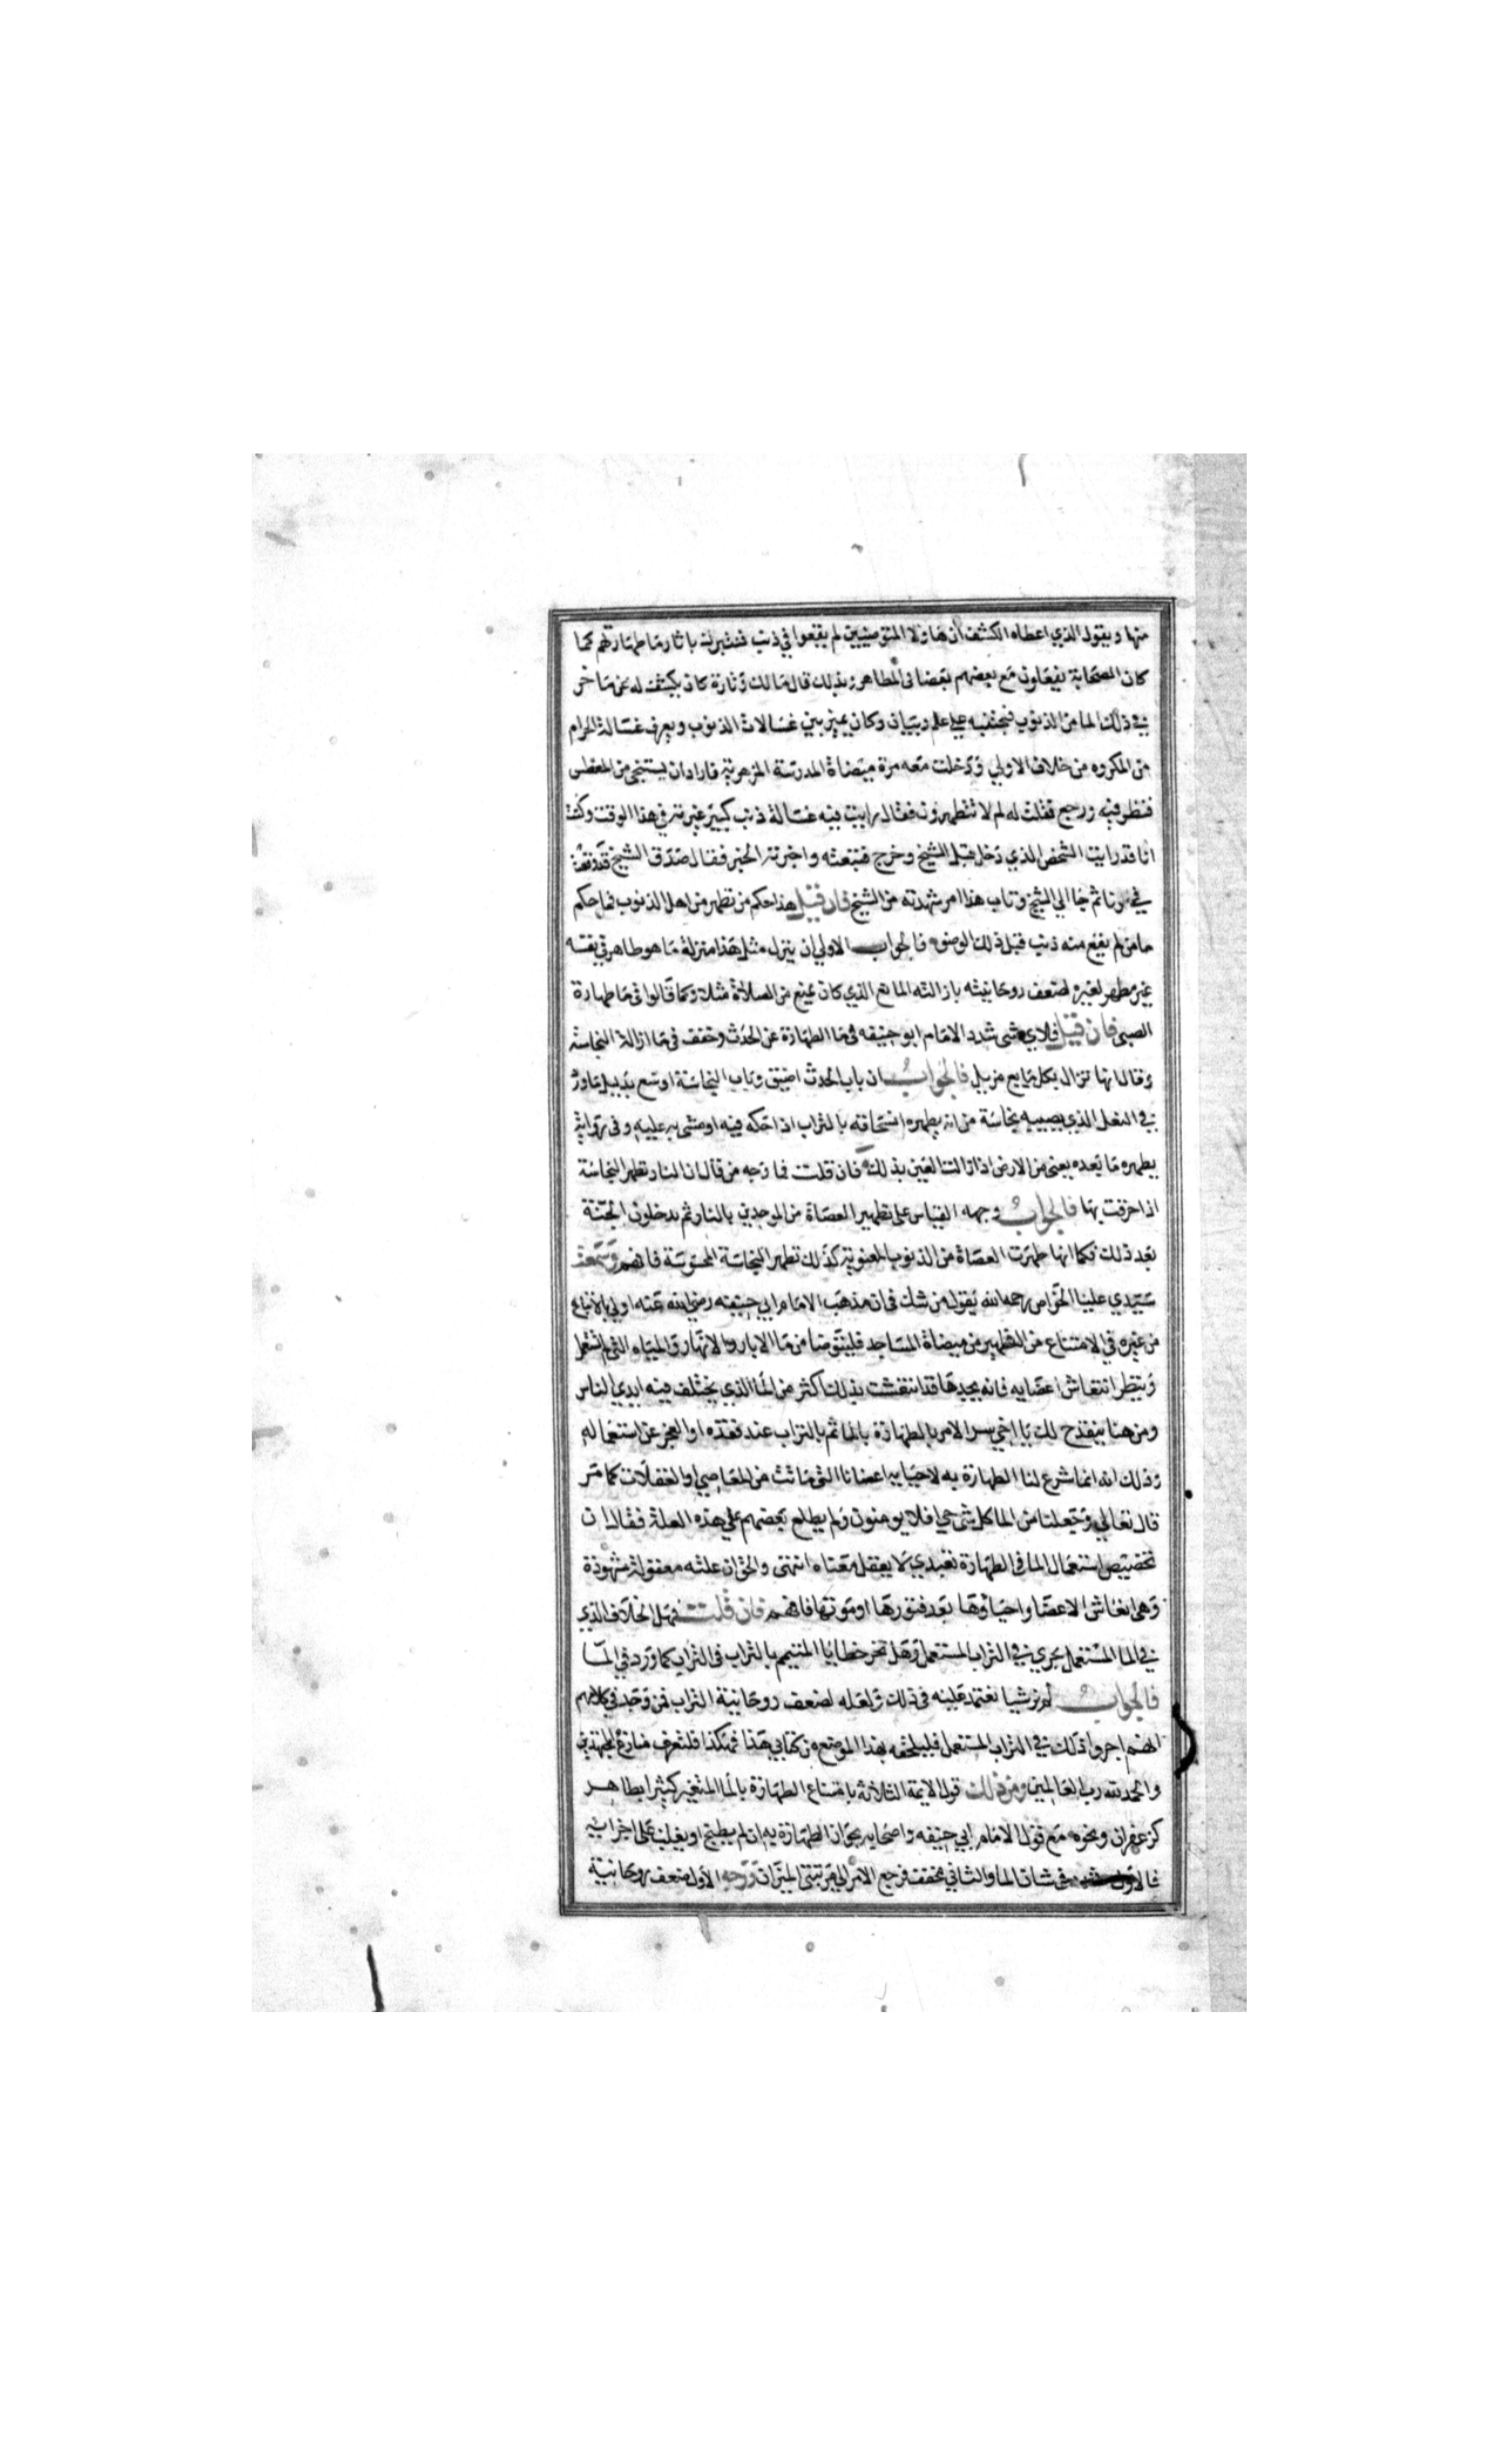 منها ويقول الذي اعطاه الكشف ان هاولا المتوضيين لم يقعوا في ذنب فنتبرك باثار ما طهارتهم كما
كان الصحابة يفعلون مع بعضهم بعضا في المطاهر وبذلك قال مالك وتارة كان يكشف له عن ما خر
في ذلك الما من الذنوب فيجتنبه علي علم وبيان وكان يميز بين غسالات الذنوب ويعرف غسالة الحرام
من المكروه من خلاف الاولي ودخلت معه مرة ميضاة المدرسة المزهرية فاراد ان يستنجي من المغطس
فنظر فيه ورجع فقلت له لم لا تتطهرون فقال رايت فيه غسالة ذنب كبير غيرته في هذا الوقت وكنت
انا قد رايت الشخص الذي دخل قبل الشيخ وخرج فتبعته واخبرته الخبر فقال صدق الشيخ قد وقعت
في زنا ثم جا الي الشيخ وتاب هذا امر شهدته من الشيخ فان قيل هذا حكم من تطهر من اهل الذنوب فما حكم
ما من لم يقع منه ذنب قبل ذلك الوضوء فالجواب الاولي ان ينزل مثل هذا منزلة ما هو طاهر في نفسه
غير مطهر لغيره لضعف روحانيته بازالته المانع الذي كان يمنع من الصلاة مثلا وكما قالوا في ما طهارة
الصبي فان قيل فلاي شي شدد الامام ابو حنيفه في ما الطهارة عن الحدث وخفف في ما ازالة النجاسة
وقال انها تزال بكل مايع مزيل فالجواب ان باب الحدث اضيق وباب النجاسة اوسع بدليل ما ورد
في النعل الذي يصيبه نجاسة من انه يطهره انسحاقه بالتراب اذا حكه فيه او مشي به عليه وفي رواية
يطهره ما بعده يعني من الارض اذا زالت العين بذلك فان قلت فما وجه من قال ان النار تطهر النجاسة
اذا حرقت بها فالجواب وجهه القياس علي تطهير العصاة من الموحدين بالنار ثم يدخلون الجنة
بعد ذلك فكما انها طهرت العصاة من الذنوب المعنوية كذلك تطهر النجاسة المحسوسة فافهم وسمعت
سيدي عليا الخواص رحمه الله يقول من شك في ان مذهب الامام ابي حنيفه رضي الله عنه اولي بالاتباع
من غيره في الامتناع من التطهير من ميضاة المساجد فليتوضا من ما الابار والانهار والمياه التي لم تستعمل
وينظر انتعاش اعضايه فانه يجدها قد انتعشت بذلك اكثر من الما الذي يختلف فيه ايدي الناس
ومن هنا ينقدح لك يا اخي سر الامر بالطهارة بالما ثم بالتراب عند فقده او العجز عن استعماله
وذلك انه انما شرع لنا الطهارة به لاحيا به اعضانا التي ماتت من المعاصي او الغفلات كما مر
قال تعالي وجعلنا من الما كل شي حي افلا يومنون ولم يطلع بعضهم علي هذه العلة فقال ان
تخصيص استعمال الما في الطهارة تعبدي لا يعقل معناه انتهي والحق ان علته معقولة مشهودة
وهي انعاش الاعضا واحياوها بعد فتورها او موتها فافهم فان قلت فهل الخلاف الذي
في الما المستعمل يجري في التراب المستعمل وهل تخر خطايا المتيمم بالتراب في التراب كما ورد في الما
فالجواب لم نر شيا نعتمد عليه في ذلك ولعله لضعف روحانية التراب فمن وجد في كلامهم
انهم اجروا ذلك في التراب المستعمل فليلحقه بهذا الموضع من كتابي هذا فهكذا فلتعرف منازع المجتهدين
والحمد لله رب العالمين ومن ذلك قول الايمة الثلاثة بامتناع الطهارة بالما المتغير كثيرا بطاهر
كزعفران ونحوه مع قول الامام ابي حنيفه واصحابه بجواز الطهارة به ان لم يطبخ او يغلب علي اجزايه
فالاول في شان الما والثاني مخفف فرجع الامر الي مرتبتي الميزان ووجه الاول ضعف روحانية